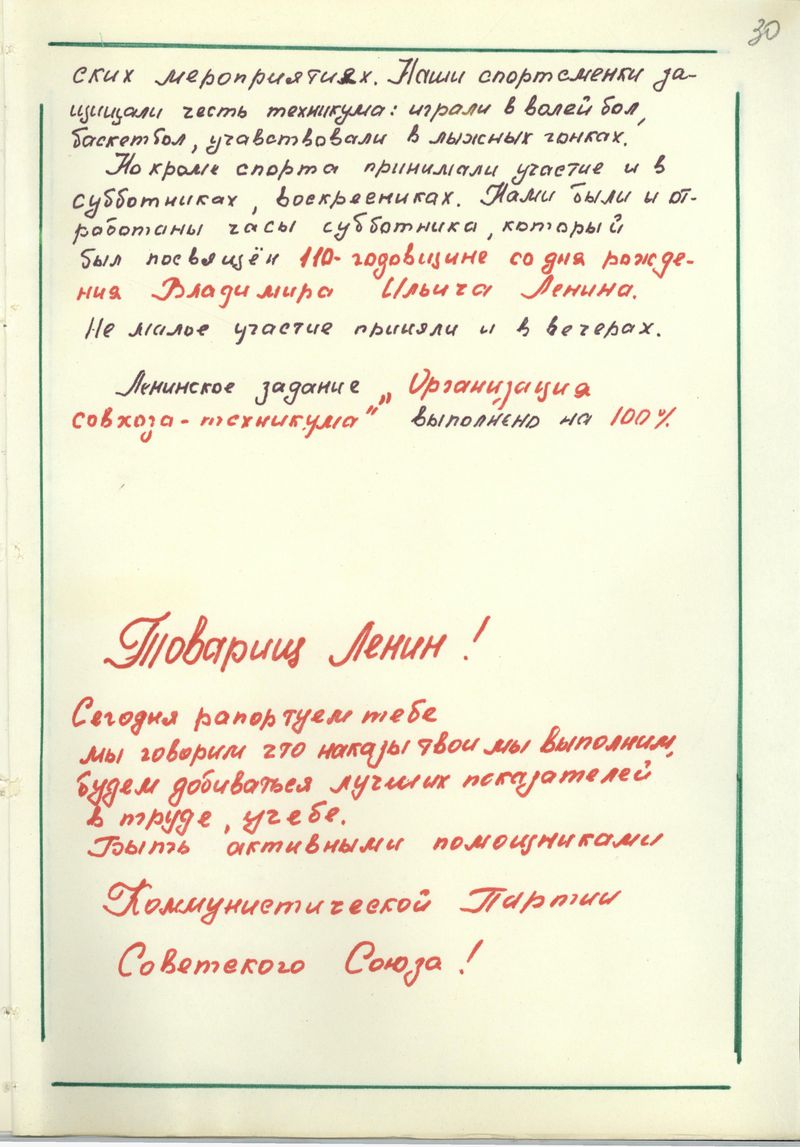 30
ских мероприятиях. Наши спортсменки за-
щищали честь техникума: играли в волейбол,
баскетбол, учавствовали в лыжных гонках.
Но кроме спорта принимали участие и в
субботниках, воскресниках. Нами были и от-
работаны часы субботника, который
был посвящён 110-годовщине со дня рожде-
ния Владимира Ильича Ленина.
Не малое участие приняли и в вечерах.
Ленинское задание „Организация
совхоза-техникума" выполнено на 100%
Товарищ Ленин!
Сегодня рапортуем тебе
мы говорим что наказы твои мы выполним,
будем добиваться лучших показателей
в труде, учебе.
Быть активными помощниками
Коммунистической Партии
Советского Союза!